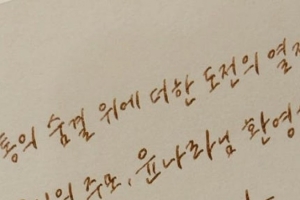 통의 숨결 위에 더한 도전의 열
의 주모, 윤나라님 환영